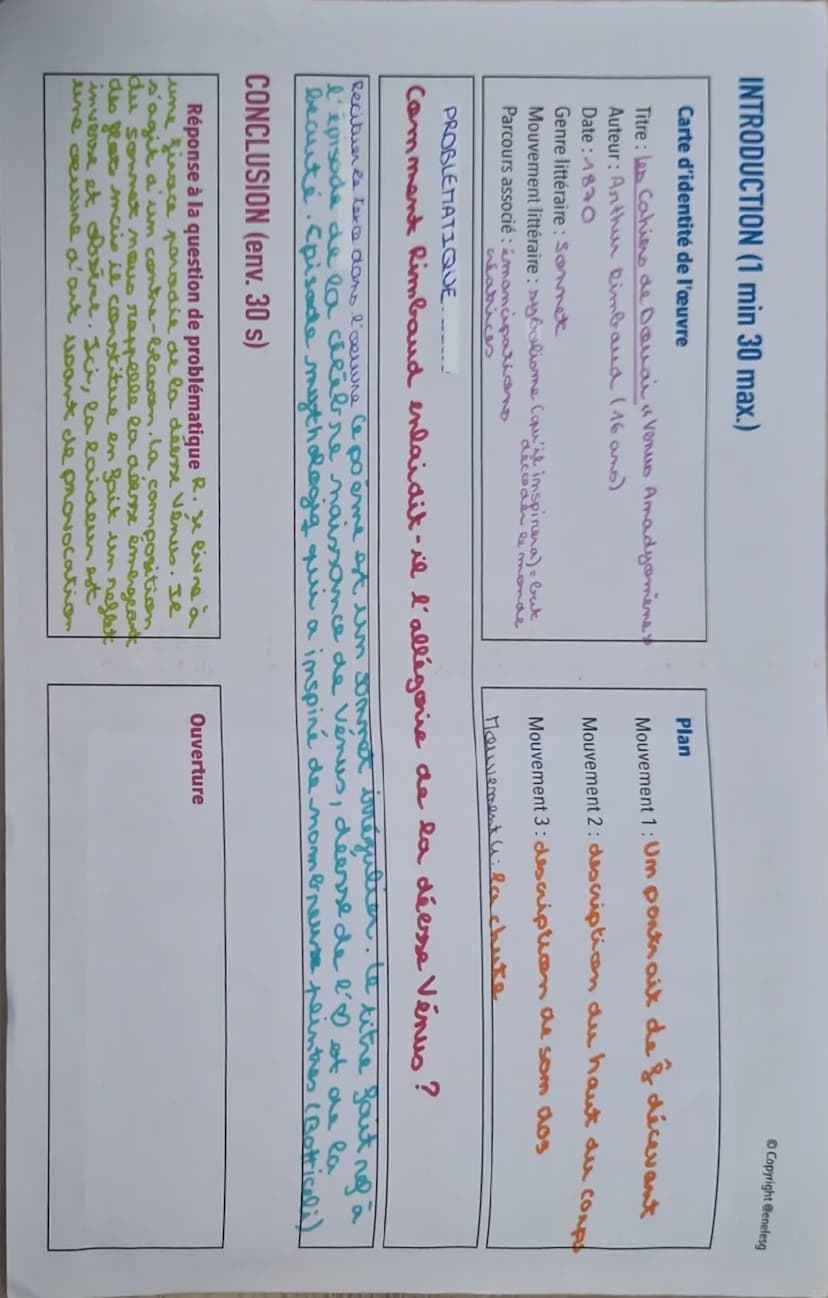 © Copyright @enelesg
INTRODUCTION (1 min 30 max.)
Carte d'identité de l'œuvre
Titre : les Cahiers de Douai « Vénus Anadyomène »
Auteur : Arthur Rimbaud (16 ans)
Date : 1870
Genre littéraire : Sonnet
Mouvement littéraire : symbolisme (qu'il inspirera) = but
décoder le monde
Parcours associé : émancipations
créatrices
Plan
Mouvement 1 : Un portrait de f décevant
Mouvement 2 : description du haut du corps
Mouvement 3 : description de son dos
Mouvement 4 : la chute
PROBLÉMATIQUE.......
Comment Rimbaud enlaidit-il l'allégorie de la déesse Vénus ?
Restituer le texte dans l'œuvre Ce poème est un sonnet irrégulier. Le titre fait réf à
l'épisode de la célèbre naissance de Vénus, déesse de l'♡ et de la
beauté. Épisode mythologiq qui a inspiré de nombreuse peintres (Botticeli)
CONCLUSION (env. 30 s)
Réponse à la question de problématique R. se livre à
une féroce parodie de la déesse Vénus. Il
s'agit d'un contre-blason. La composition
du sonnet nous rappelle la déesse émergeant
des flots mais il constitue en fait un reflet
inversé et obscène. Ici, la laideur est
une œuvre d'art usant de provocation
Ouverture